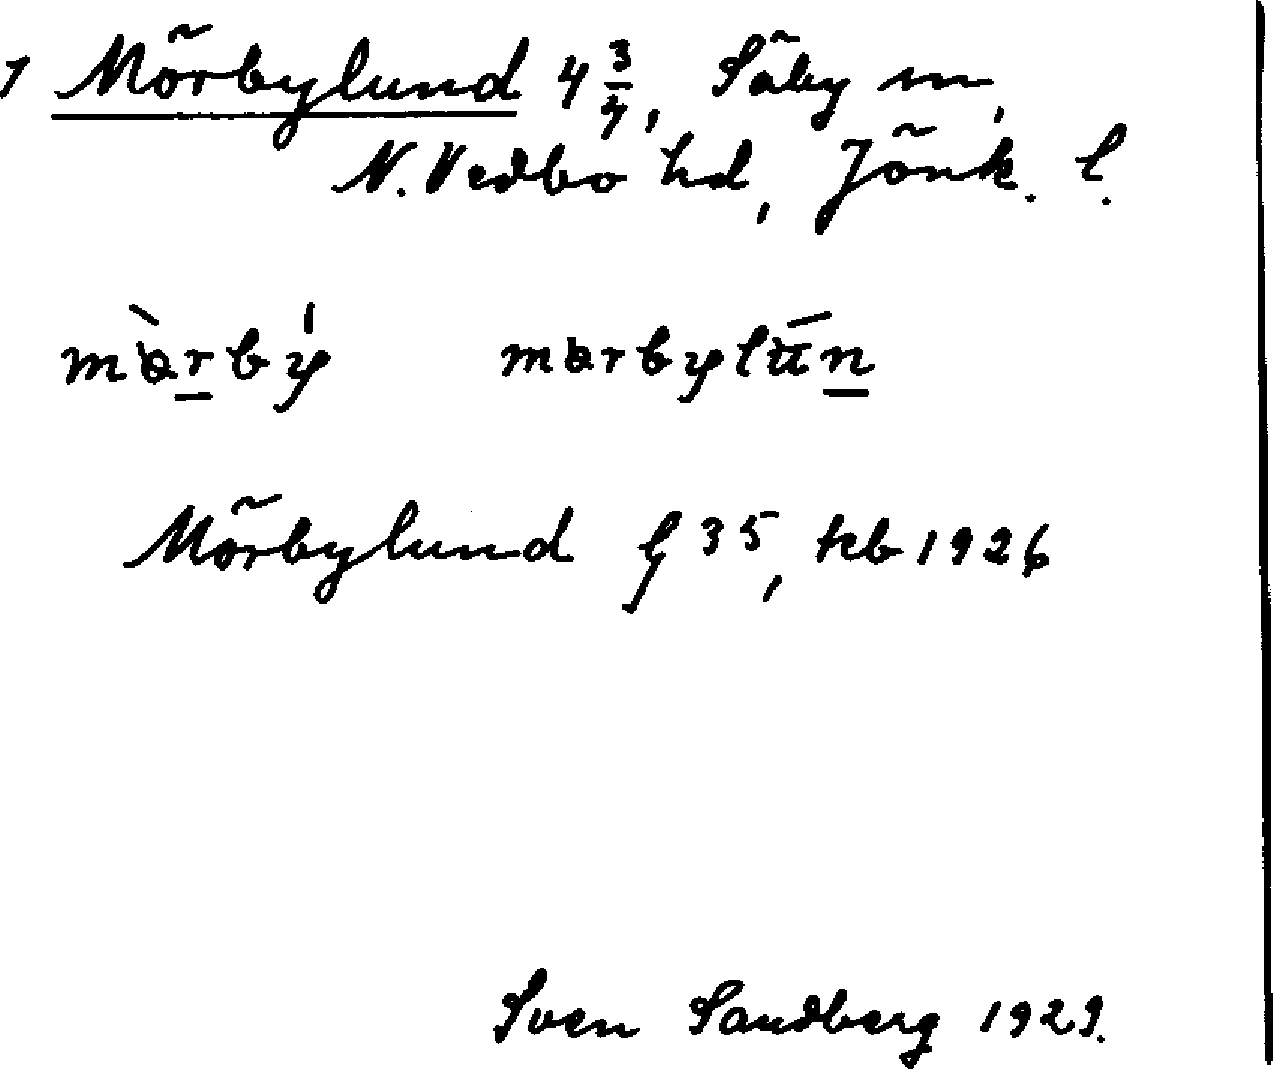 1 Mörbylund 4 3/4, Säby sn,
N. Vedbo hd, Jönk. l.
mörby mörbylun
Mörbylund g 35, kb 1926
Sven Sandberg 1929.